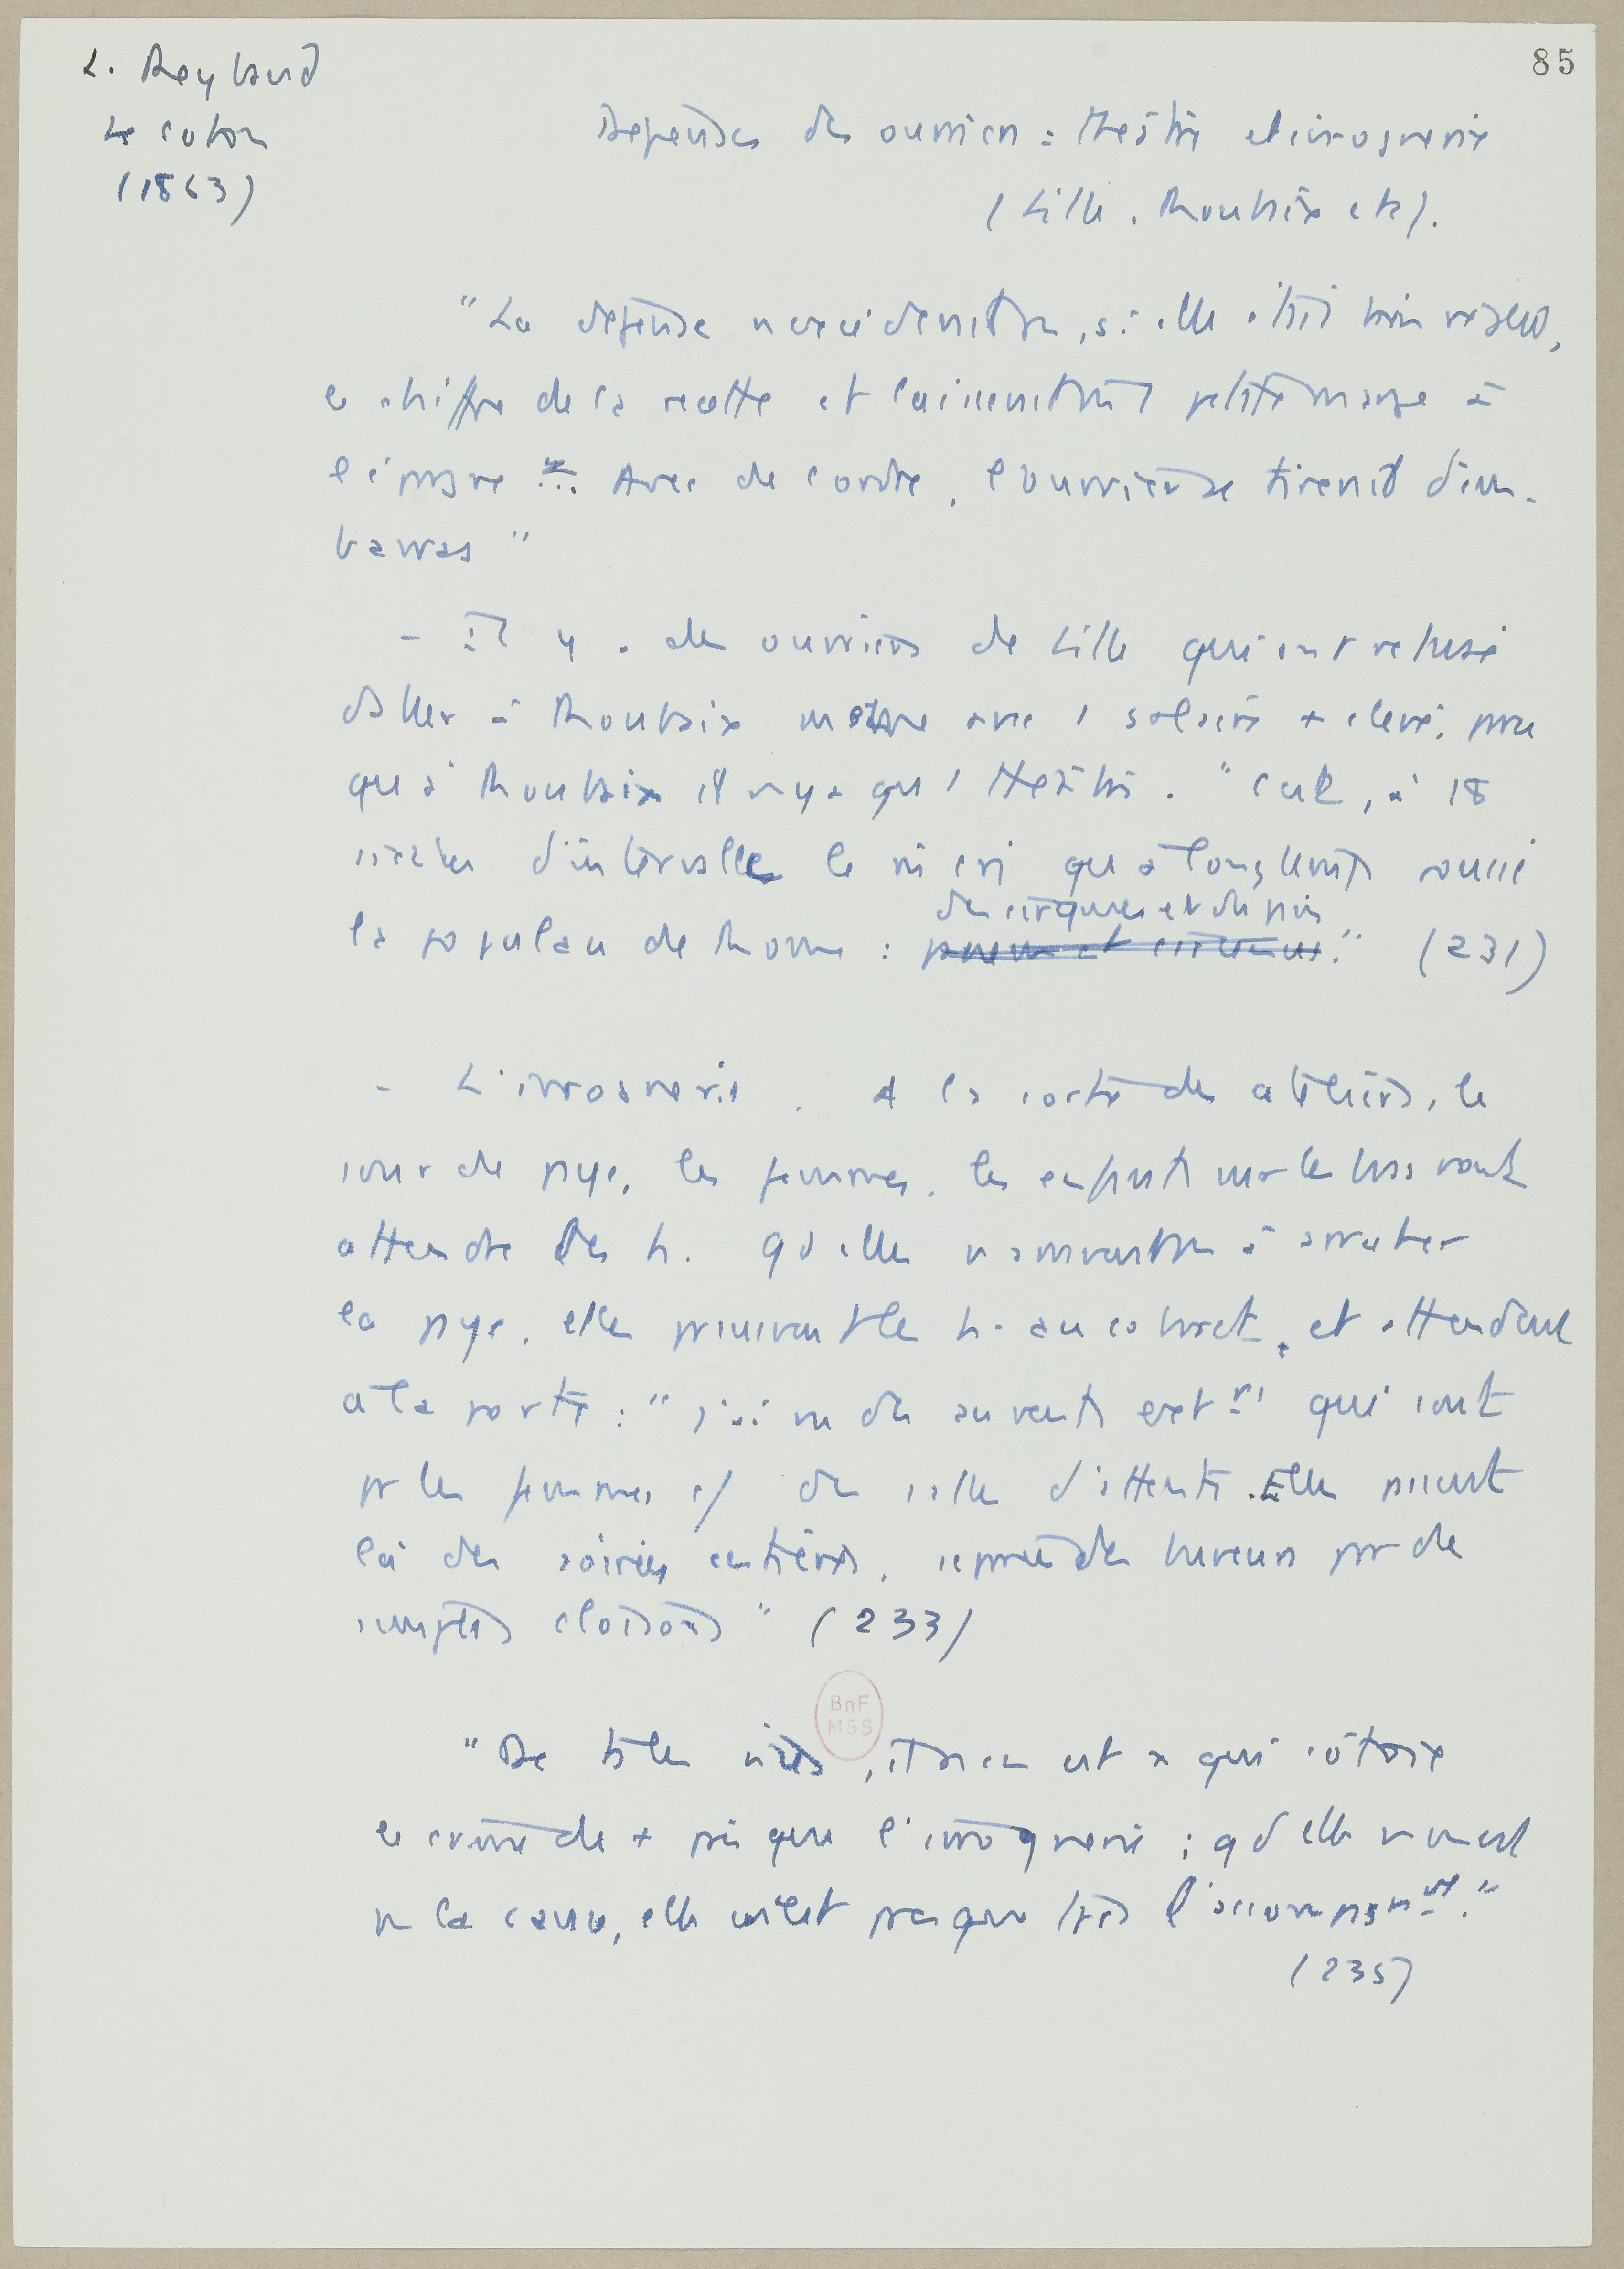 L. Reybaud
Le coton
(1863)
85
Dépenses des ouvriers : théâtre et ivrognerie
(Lille, Roubaix etc).
"La dépense n'excéderait pas, si elle était bien réglée,
le chiffre de la recette et laisserait une petite marge à
l'épargne ... Avec de l'ordre, l'ouvrier se tirerait d'em-
barras"
- Il y a des ouvriers de Lille qui ont refusé
d'aller à Roubaix même avec 1 salaire + élevé, parce
qu'à Roubaix il n'y a qu'1 théâtre. "C'est, à 18
siècles d'intervalle le cri qu'a longtemps poussé
la populace de Rome : panem et circenses." (231)
des cirques et du pain
- L'ivrognerie. A la sortie des ateliers, le
jour de paye, les femmes, les enfants sur les bras vont
attendre les h. Qd elles ne parviennent pas à arracher
la paye, elles poursuivent les h. au cabaret, et attendent
à la porte : "j'ai vu des auvents extrs qui sont
pr les femmes c/ des salles d'attente. Elles passent
là des soirées entières, séparées des buveurs par de
simples cloisons" (233)
BnF
MSS
"De tous les vices, il n'en est x qui côtoie
le crime de + près que l'ivrognerie ; qd elle n'en est
pas la cause, elle en est presque tjrs l'accompagnt."
(235)